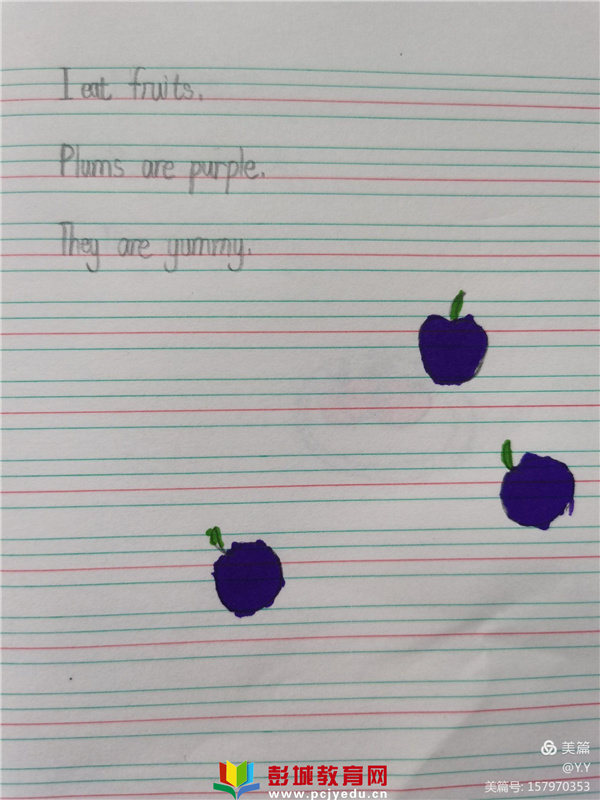 I eat fruits.
Plums are purple.
They are yummy.
美篇
@Y.Y
美篇号: 157970353
彭城教育网
www.pcjyedu.cn